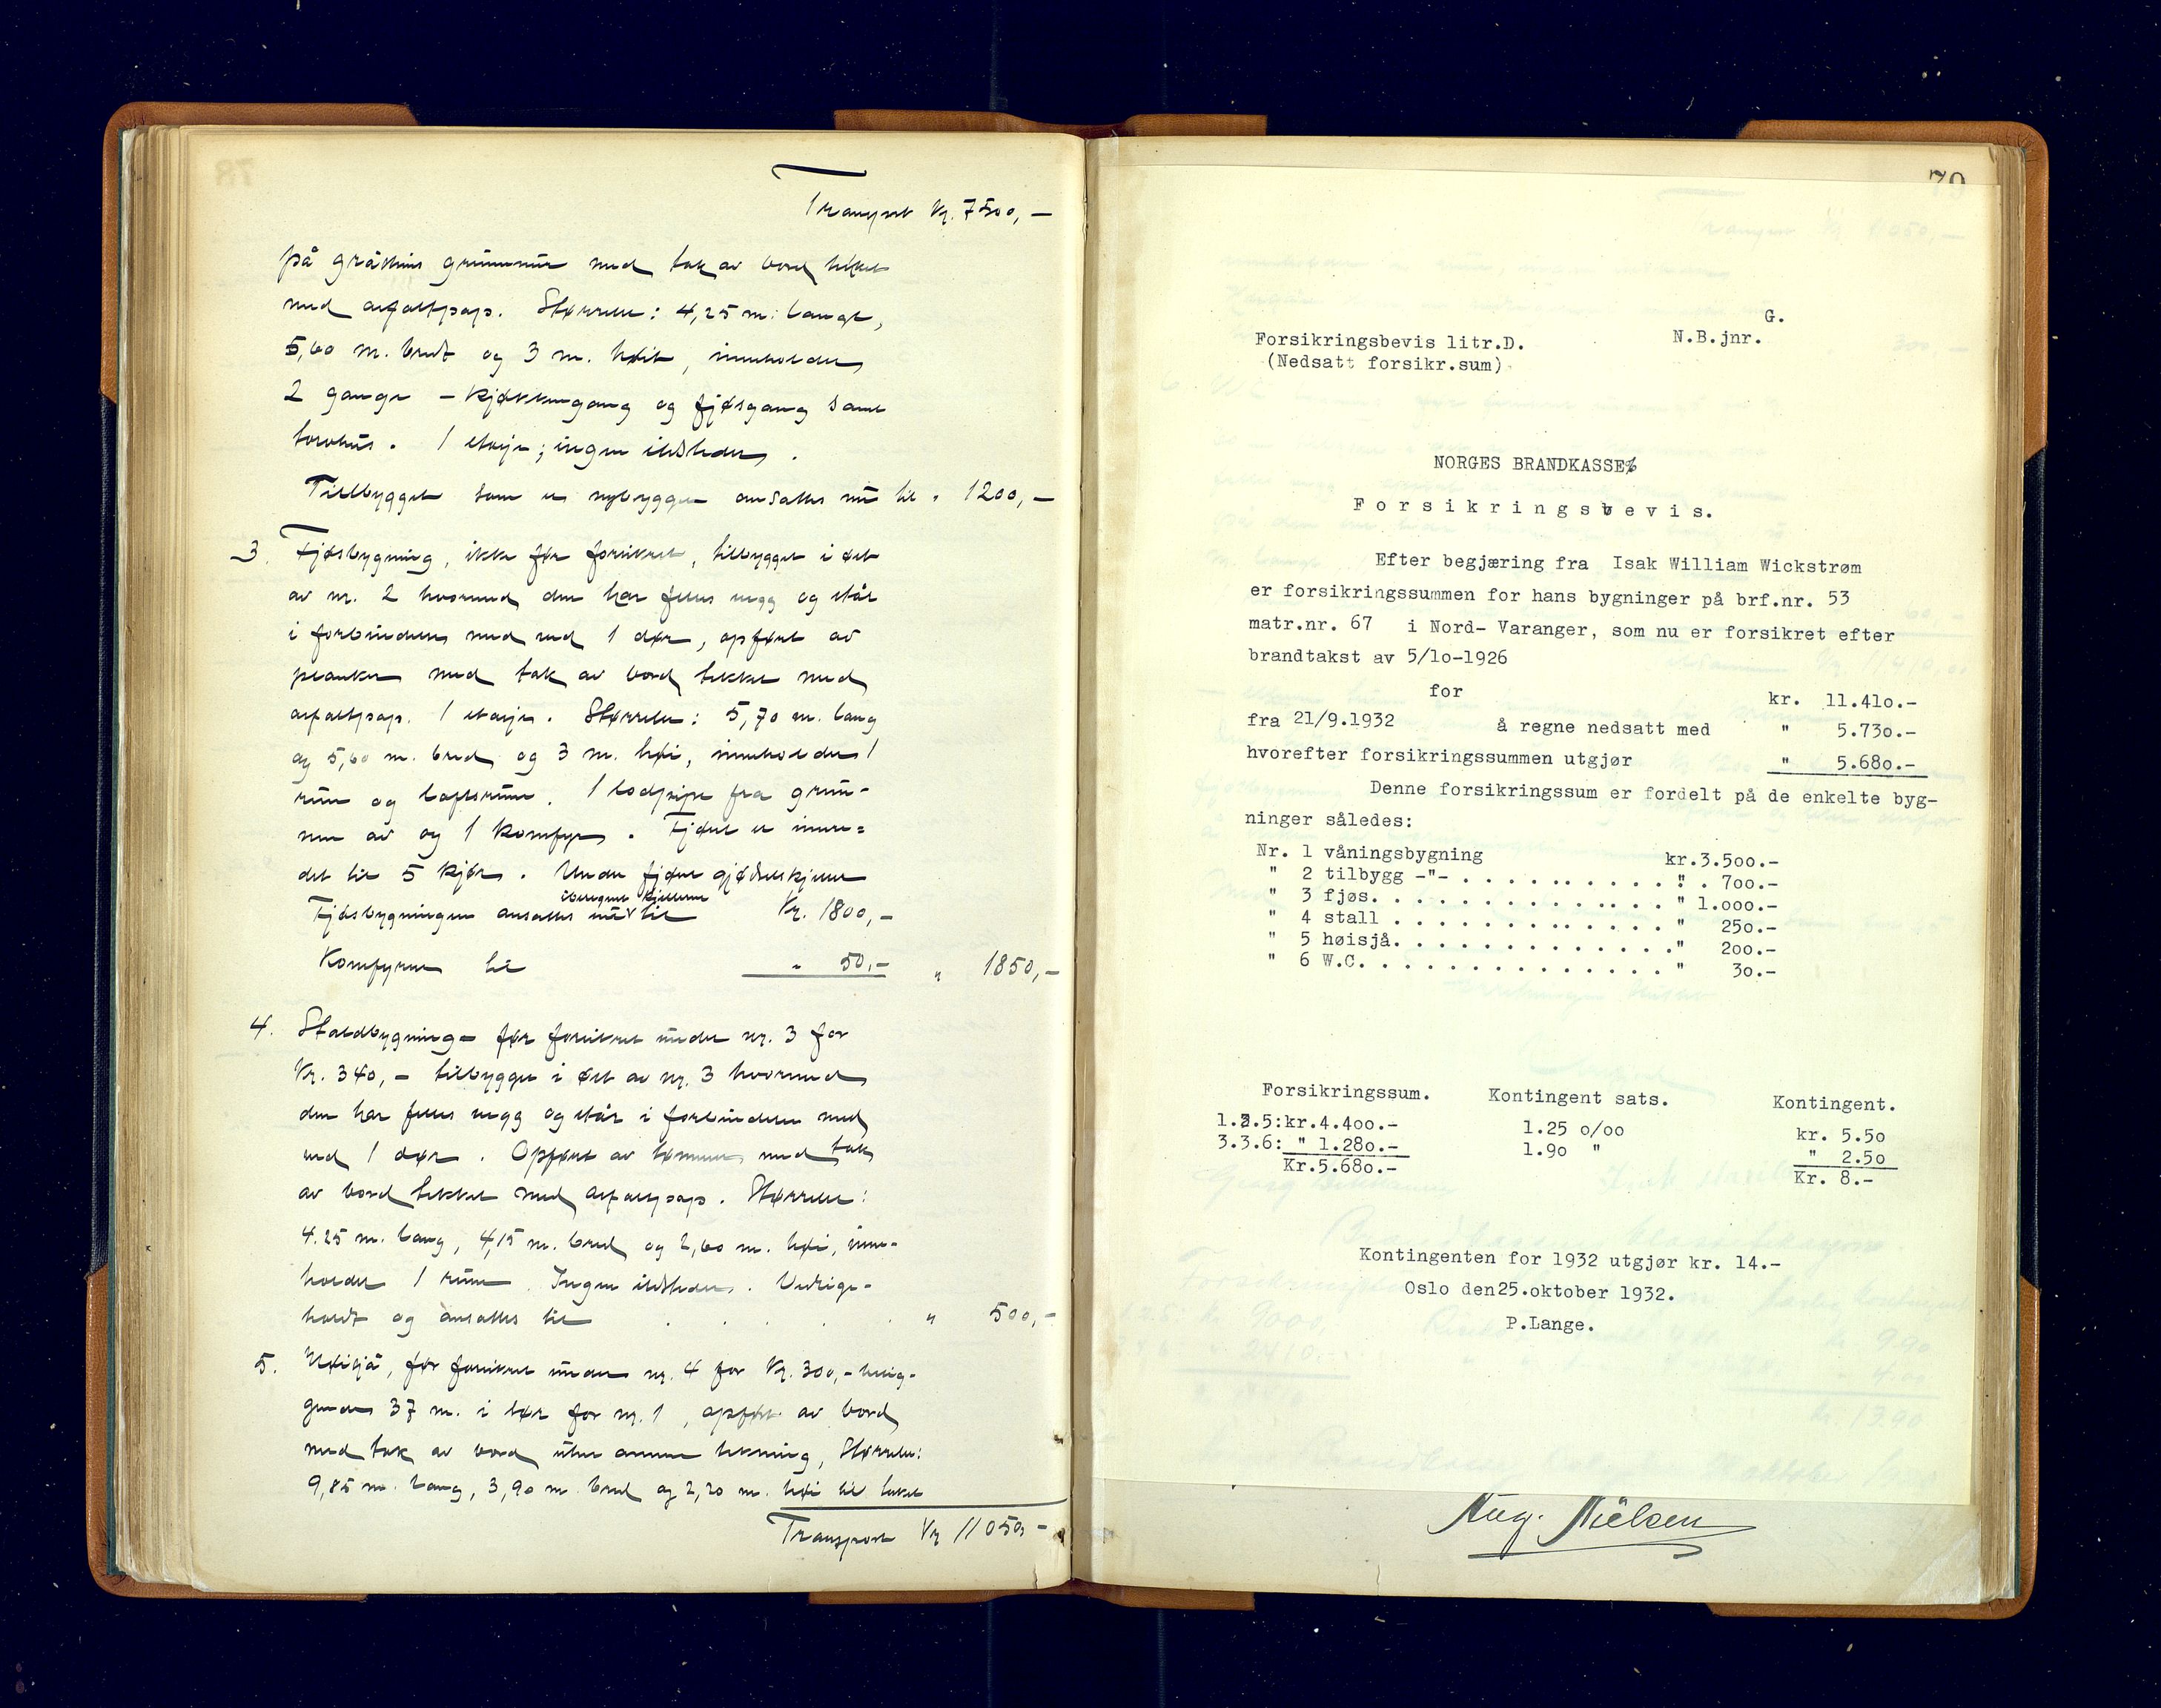 Transport Kr. 7500,-
på gråstens grunnmur med tak av bord tekket
med asfaltpap. Størrelse: 4,25 m. langt,
5,60 m. bredt og 3 m. høit, inneholder
2 gange - kjøkkengang og fjøsgang samt
torvhus. 1 etasje; ingen ildsteder.
Tilbygget som er nybygget ansattes nu til " 1200,-
3. Fjøsbygning, ikke før forsikret, tilbygget i øst
av nr. 2 hvormed den har felles vegg og står
i forbindelse med ved 1 dør, opført av
planker med tak av bord tekket med
asfaltpap. 1 etasje. Størrelse: 5,70 m. lang
og 5,60 m. bred og 3 m. høi, inneholder 1
rum og loftsrum. 1 lodpipe fra grun-
nen av og 1 komfyr. Fjøset er innre=
det til 5 kjør. Under fjøset gjødselkjeller
iberegnet kjelleren
Fjøsbygningen ansattes nu til Kr. 1800,-
Komfyren til " 50,- " 1850,-
4. Staldbygning - før forsikret under nr. 3 for
Kr. 340,- tilbygget i øst av nr. 3 hvormed
den har felles vegg og står i forbindelse med
ved 1 dør. Opført av tømmer med tak
av bord tekket med asfaltpap. Størrelse:
4.25 m. lang, 4,15 m. bred og 2,60 m. høi, inne-
holder 1 rum. Ingen ildsteder. Vedlige-
holdt og ansattes til . . . . . " 500,-
5. Høisjå, før forsikret under nr. 4 for Kr. 300,- belig-
gende 37 m. i for nr. 1, opført av bord
med tak av bord uten annen tekning, Størrelse:
9,85 m. lang, 3,90 m. bred og 2,20 m. høi til taket
Transport Kr 11050,-
79
G.
Forsikringsbevis litr.D. N.B.jnr.
(Nedsatt forsikr.sum)
NORGES BRANDKASSES
Forsikringsbevis.
Efter begjæring fra Isak William Wickstrøm
er forsikringssummen for hans bygninger på brf.nr. 53
matr.nr. 67 i Nord- Varanger, som nu er forsikret efter
brandtakst av 5/10-1926
for kr. 11.410.-
fra 21/9.1932 å regne nedsatt med " 5.730.-
hvorefter forsikringssummen utgjør " 5.680.-
Denne forsikringssum er fordelt på de enkelte byg-
ninger således:
Nr. 1 våningsbygning kr.3.500.-
" 2 tilbygg -"- . . . . . . . . . . . " . 700.-
" 3 fjøs. . . . . . . . . . . . . . . " 1.000.-
" 4 stall . . . . . . . . . . . . . . " 250.-
" 5 høisjå. . . . . . . . . . . . . ." 200.-
" 6 W.C. . . . . . . . . . . . . . . " 30.-
Forsikringssum. Kontingent sats. Kontingent.
1.2.5:kr.4.400.- 1.25 o/oo kr. 5.50
3.3.6: " 1.280.- 1.90 " " 2.50
Kr.5.680.- Kr. 8.-
Kontingenten for 1932 utgjør kr. 14.-
Oslo den25.oktober 1932.
P.Lange.
Aug. Nielsen